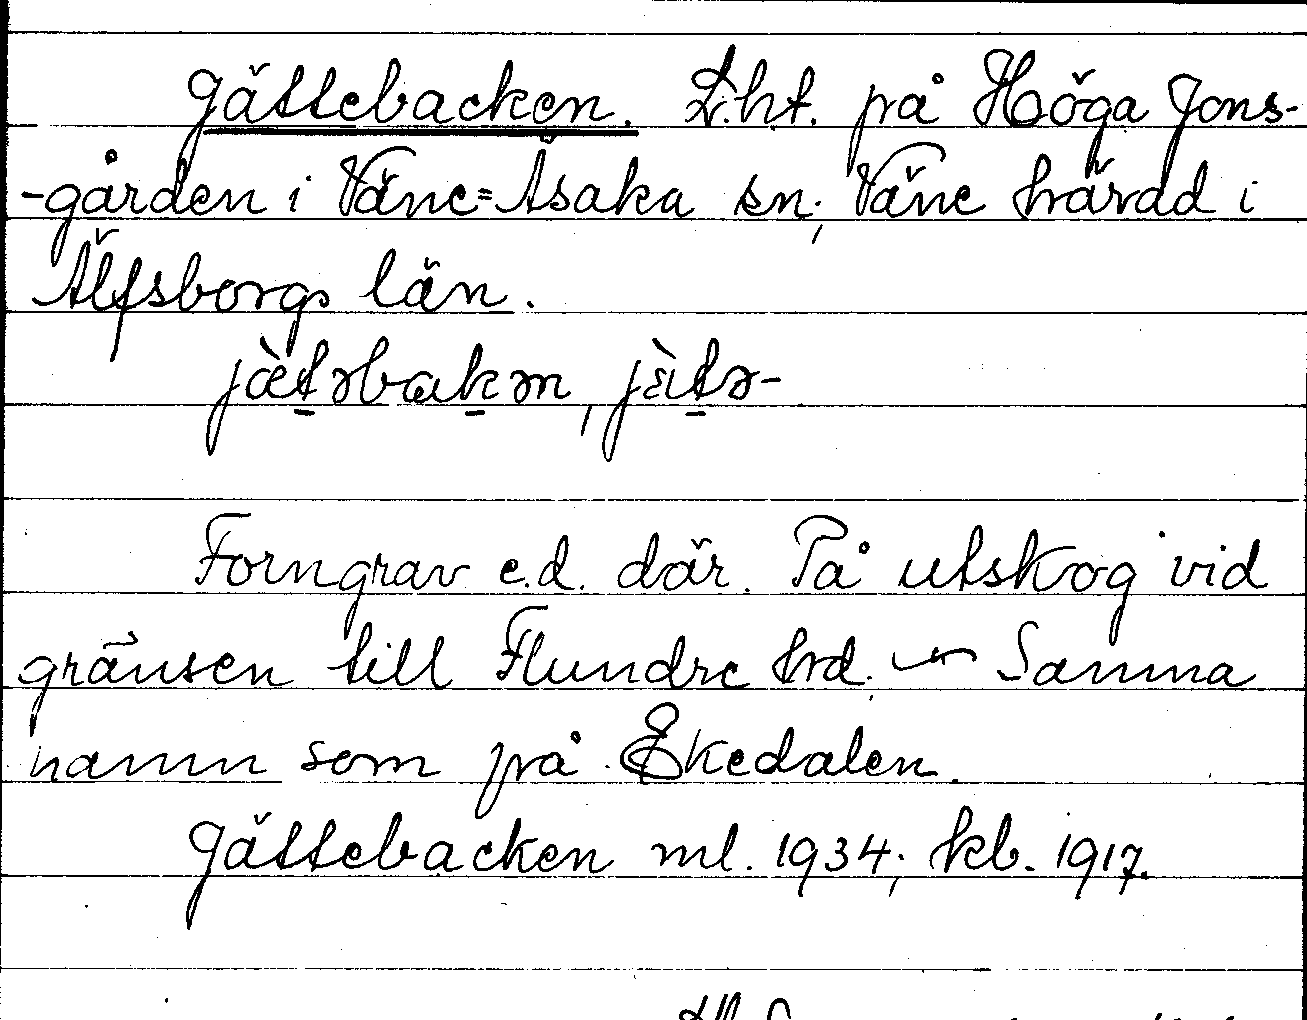 Gättebacken. L.ht. på Höga Jons-
-gården i Väne-Åsaka sn; Väne härad i
Älfsborgs län.
jæ̀t̲əbak̲ən, jɛ̀t̲ə-
Forngrav e.d. där. På utskog vid
gränsen till Flundre hrd. ~ Samma
namn som på Ekedalen.
Gättebacken ml. 1934; kb. 1917.